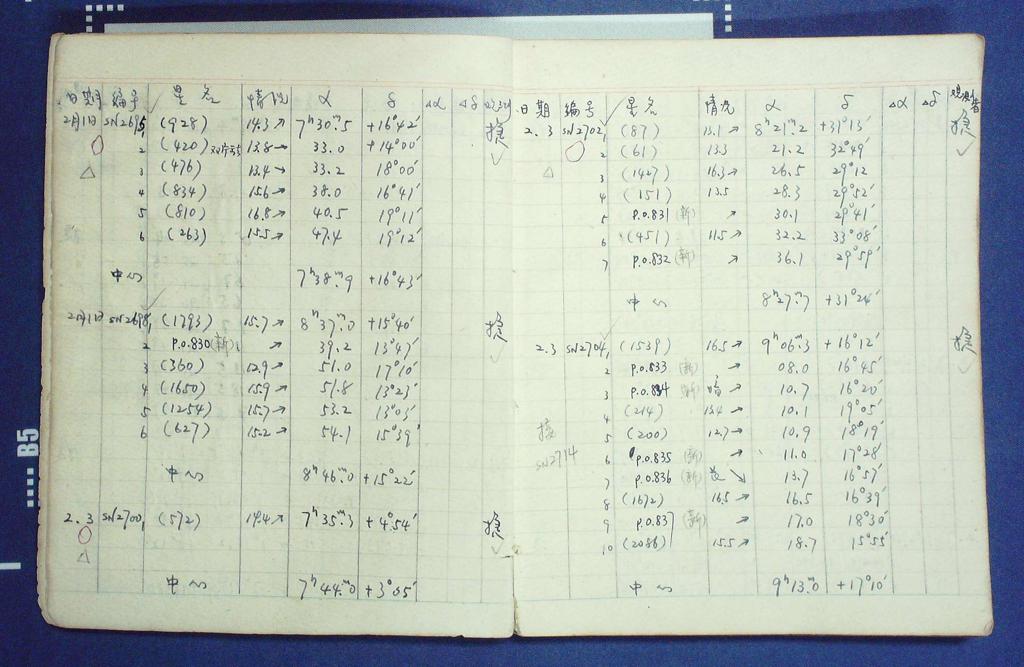 日期 编号 星名 情况 α δ Δα Δδ
2月1日 SN2695, 1 (928) 14.3↗ 7ʰ30ᵐ.5 +16°42′
2 (420) 13.8→ 33.0 +14°00′
3 (476) 13.4→ 33.2 18°00′
4 (834) 15.6↗ 38.0 16°41′
5 (810) 16.8↗ 40.5 19°11′
6 (263) 15.5↗ 47.4 19°12′
中心 7ʰ38ᵐ.9 +16°43′
2月1日 SN2698, 1 (1793) 15.7↗ 8ʰ37ᵐ.0 +15°40′
2 P.O.830(新) ↗ 39.2 13°47′
3 (360) 12.9→ 51.0 17°10′
4 (1650) 15.9↗ 51.8 13°23′
5 (1254) 15.7↗ 53.2 13°03′
6 (627) 15.2↗ 54.1 15°39′
中心 8ʰ46ᵐ.0 +15°22′
2.3 SN2700, 1 (572) 14.4↗ 7ʰ35ᵐ.3 +4°54′
中心 7ʰ44ᵐ.0 +3°05′
日期 编号 星名 情况 α δ Δα Δδ 观测者
2.3 SN2702, 1 (87) 13.1↗ 8ʰ21ᵐ.2 +31°13′
2 (61) 13.3 21.2 32°49′
3 (1427) 16.3↗ 26.5 29°12
4 (151) 13.5 28.3 29°52′
5 P.O.831 (新) ↗ 30.1 29°41′
6 (451) 11.5↗ 32.2 33°08′
7 P.O.832 (新) ↗ 36.1 29°59′
中心 8ʰ27ᵐ.7 +31°24′
2.3 SN2704, 1 (1539) 16.5↗ 9ʰ06ᵐ.3 +16°12′
2 P.O.833 (新) ↗ 08.0 16°45′
3 P.O.834 (新) 暗↗ 10.7 16°20′
4 (214) 13.4→ 10.1 19°05′
5 (200) 12.7→ 10.9 18°19′
6 P.O.835 (新) ↗ 11.0 17°28′
7 P.O.836 (新) ↘ 13.7 16°57′
8 (1672) 16.5↗ 16.5 16°39′
9 P.O.837 (新) ↗ 17.0 18°30′
10 (2086) 15.5↗ 18.7 15°55′
接
SN2714
中心 9ʰ13ᵐ.0 +17°10′
B5